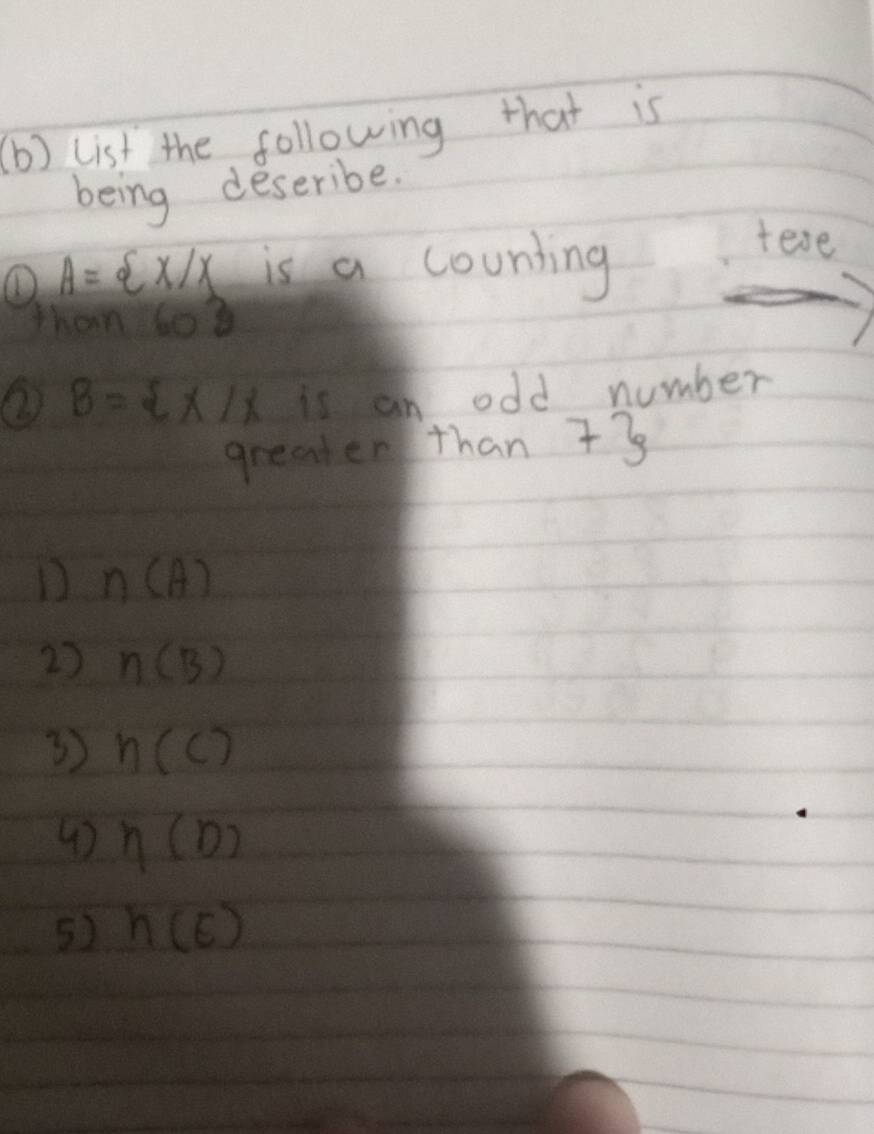 (b) List the following that is
being deseribe.
① A = {X/X is a counting tese
than 60}
② B = {X/X is an odd number
greater than 7}
1) n(A)
2) n(B)
3) n(C)
4) n(D)
5) n(E)